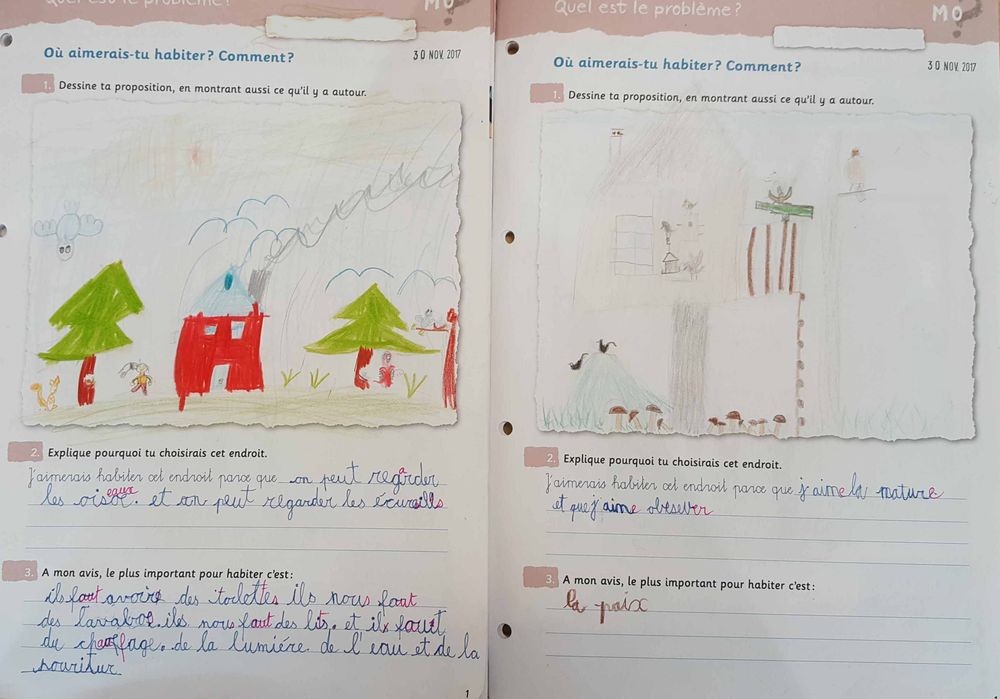 Quel est le problème?
MO
Où aimerais-tu habiter? Comment?
30 NOV. 2017
1. Dessine ta proposition, en montrant aussi ce qu'il y a autour.
2. Explique pourquoi tu choisirais cet endroit.
J'aimerais habiter cet endroit parce que on peut regarder
les oiseaux. et on peut regarder les écureills
3. A mon avis, le plus important pour habiter c'est:
ils faut avoire des toclottes ils nous faut
des lavaboe. iles nous faut des lits. et ils faut
du chauffage. de la lumiére de l'eau et de la
nouritur
1
Quel est le problème?
MO
?
Où aimerais-tu habiter? Comment?
30 NOV. 2017
1. Dessine ta proposition, en montrant aussi ce qu'il y a autour.
2. Explique pourquoi tu choisirais cet endroit.
J'aimerais habiter cet endroit parce que j'aime la nature
et que j'aime obsever
3. A mon avis, le plus important pour habiter c'est:
la paix